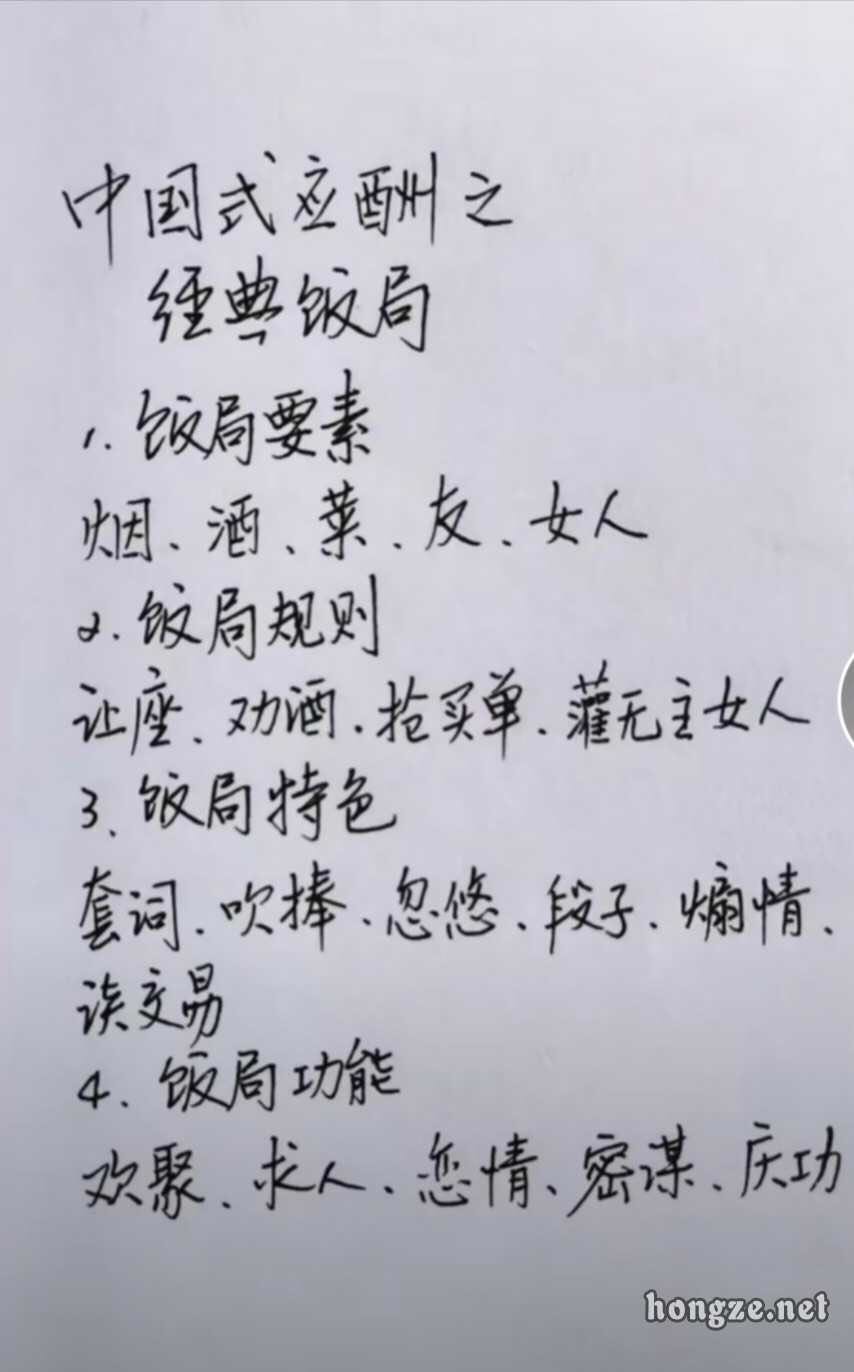 中国式应酬之
经典饭局
1、饭局要素
烟、酒、菜、友、女人
2、饭局规则
让座、劝酒、抢买单、灌无主女人
3、饭局特色
套词、吹捧、忽悠、段子、煽情、
谈交易
4、饭局功能
欢聚、求人、恋情、密谋、庆功
hongze.net